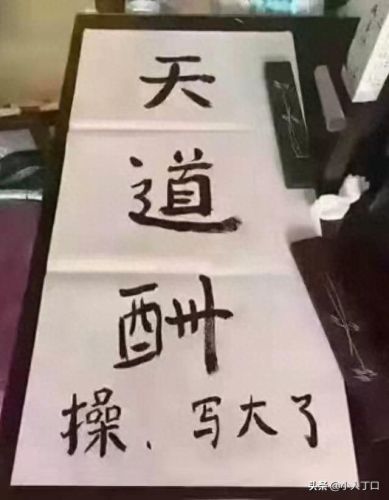 天
道
酬
操、写大了
头条@小人丁口